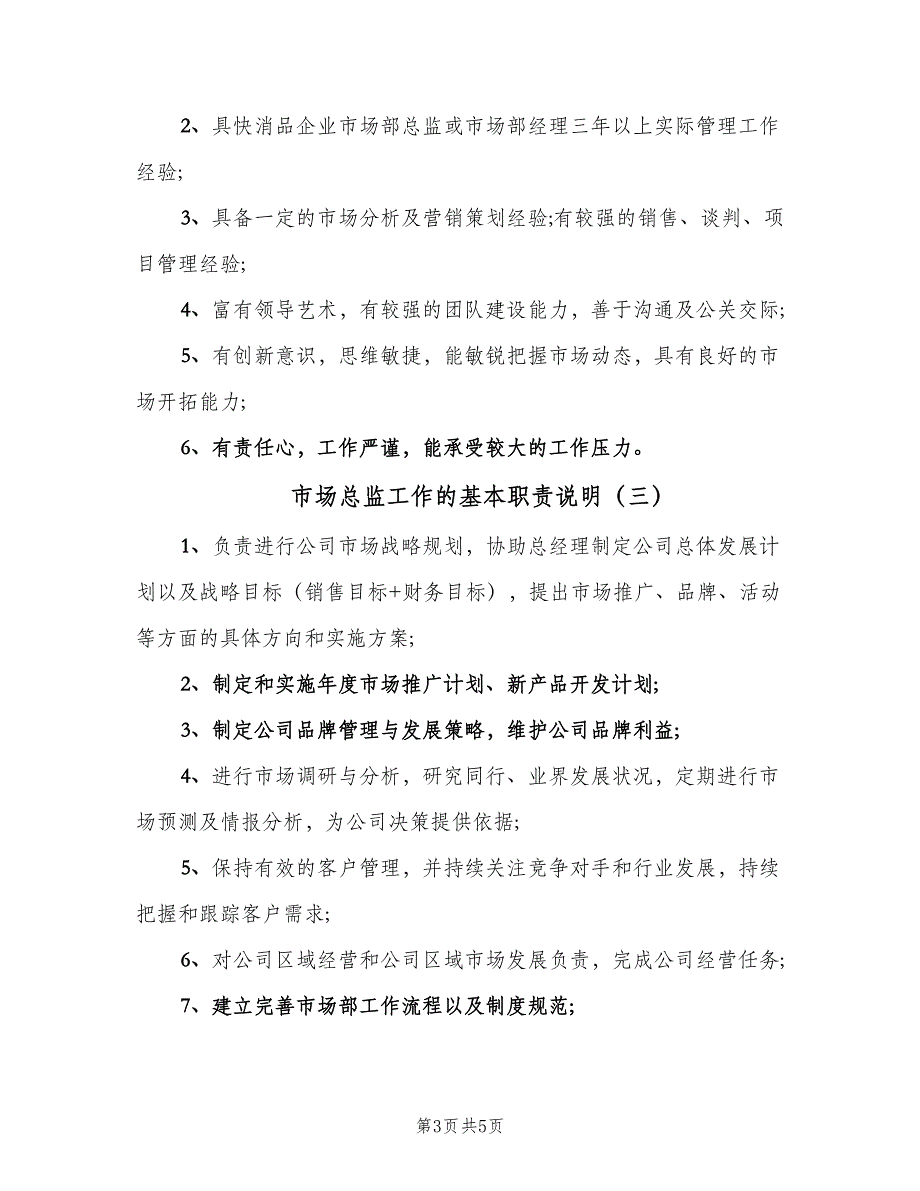 2、具快消品企业市场部总监或市场部经理三年以上实际管理工作
经验;
3、具备一定的市场分析及营销策划经验;有较强的销售、谈判、项
目管理经验;
4、富有领导艺术，有较强的团队建设能力，善于沟通及公关交际;
5、有创新意识，思维敏捷，能敏锐把握市场动态，具有良好的市
场开拓能力;
6、有责任心，工作严谨，能承受较大的工作压力。
市场总监工作的基本职责说明（三）
1、负责进行公司市场战略规划，协助总经理制定公司总体发展计
划以及战略目标（销售目标+财务目标），提出市场推广、品牌、活动
等方面的具体方向和实施方案;
2、制定和实施年度市场推广计划、新产品开发计划;
3、制定公司品牌管理与发展策略，维护公司品牌利益;
4、进行市场调研与分析，研究同行、业界发展状况，定期进行市
场预测及情报分析，为公司决策提供依据;
5、保持有效的客户管理，并持续关注竞争对手和行业发展，持续
把握和跟踪客户需求;
6、对公司区域经营和公司区域市场发展负责，完成公司经营任务;
7、建立完善市场部工作流程以及制度规范;
第3页 共5页